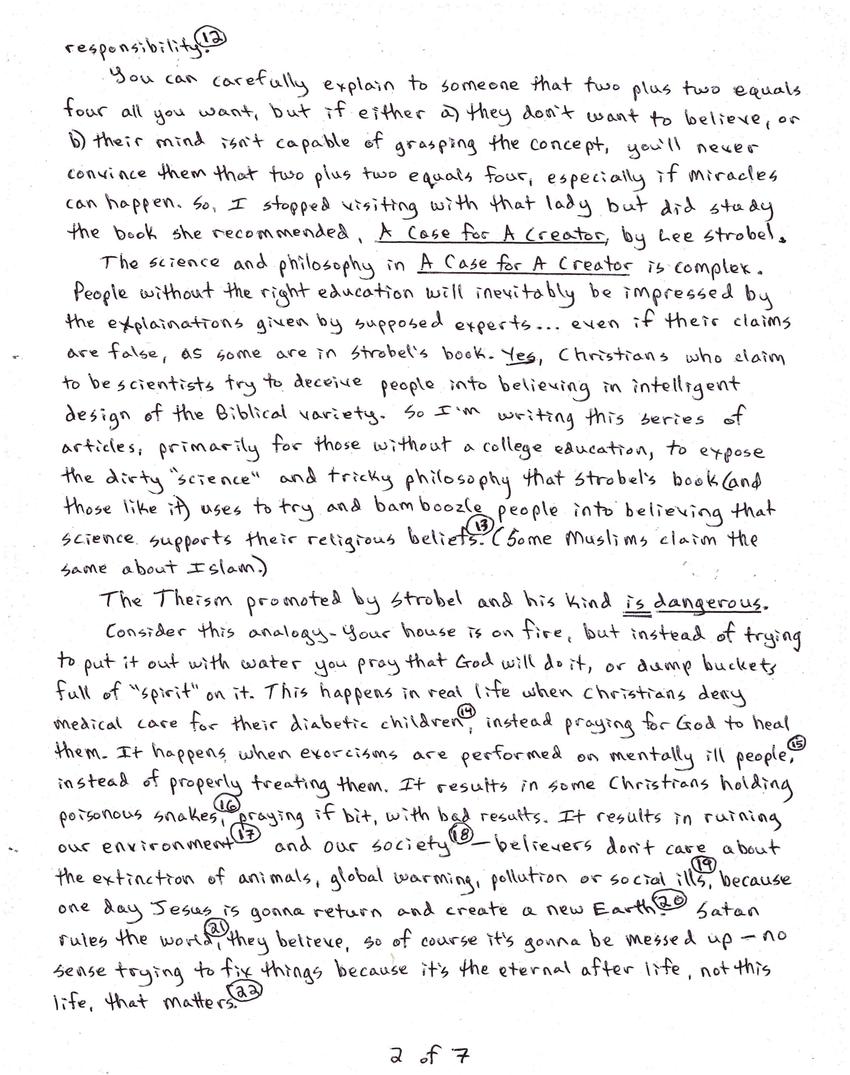 responsibility. 12
You can carefully explain to someone that two plus two equals
four all you want, but if either a) they don't want to believe, or
b) their mind isn't capable of grasping the concept, you'll never
convince them that two plus two equals four, especially if miracles
can happen. So, I stopped visiting with that lady but did study
the book she recommended, A Case for A Creator, by Lee Strobel.
The science and philosophy in A Case for A Creator is complex.
People without the right education will inevitably be impressed by
the explainations given by supposed experts... even if their claims
are false, as some are in Strobel's book. Yes, Christians who claim
to be scientists try to deceive people into believing in intelligent
design of the Biblical variety. So I'm writing this series of
articles, primarily for those without a college education, to expose
the dirty "science" and tricky philosophy that Strobel's book (and
those like it) uses to try and bamboozle people into believing that
science supports their religious beliefs. 13 (Some Muslims claim the
same about Islam.)
The Theism promoted by Strobel and his kind is dangerous.
Consider this analogy - Your house is on fire, but instead of trying
to put it out with water you pray that God will do it, or dump buckets
full of "spirit" on it. This happens in real life when Christians deny
medical care for their diabetic children 14, instead praying for God to heal
them. It happens when exorcisms are performed on mentally ill people, 15
instead of properly treating them. It results in some Christians holding
poisonous snakes, 16 praying if bit, with bad results. It results in ruining
our environment 17 and our society 18 - believers don't care about
the extinction of animals, global warming, pollution or social ills, 19 because
one day Jesus is gonna return and create a new Earth. 20 Satan
rules the world, 21 they believe, so of course it's gonna be messed up - no
sense trying to fix things because it's the eternal after life, not this
life, that matters. 22
2 of 7